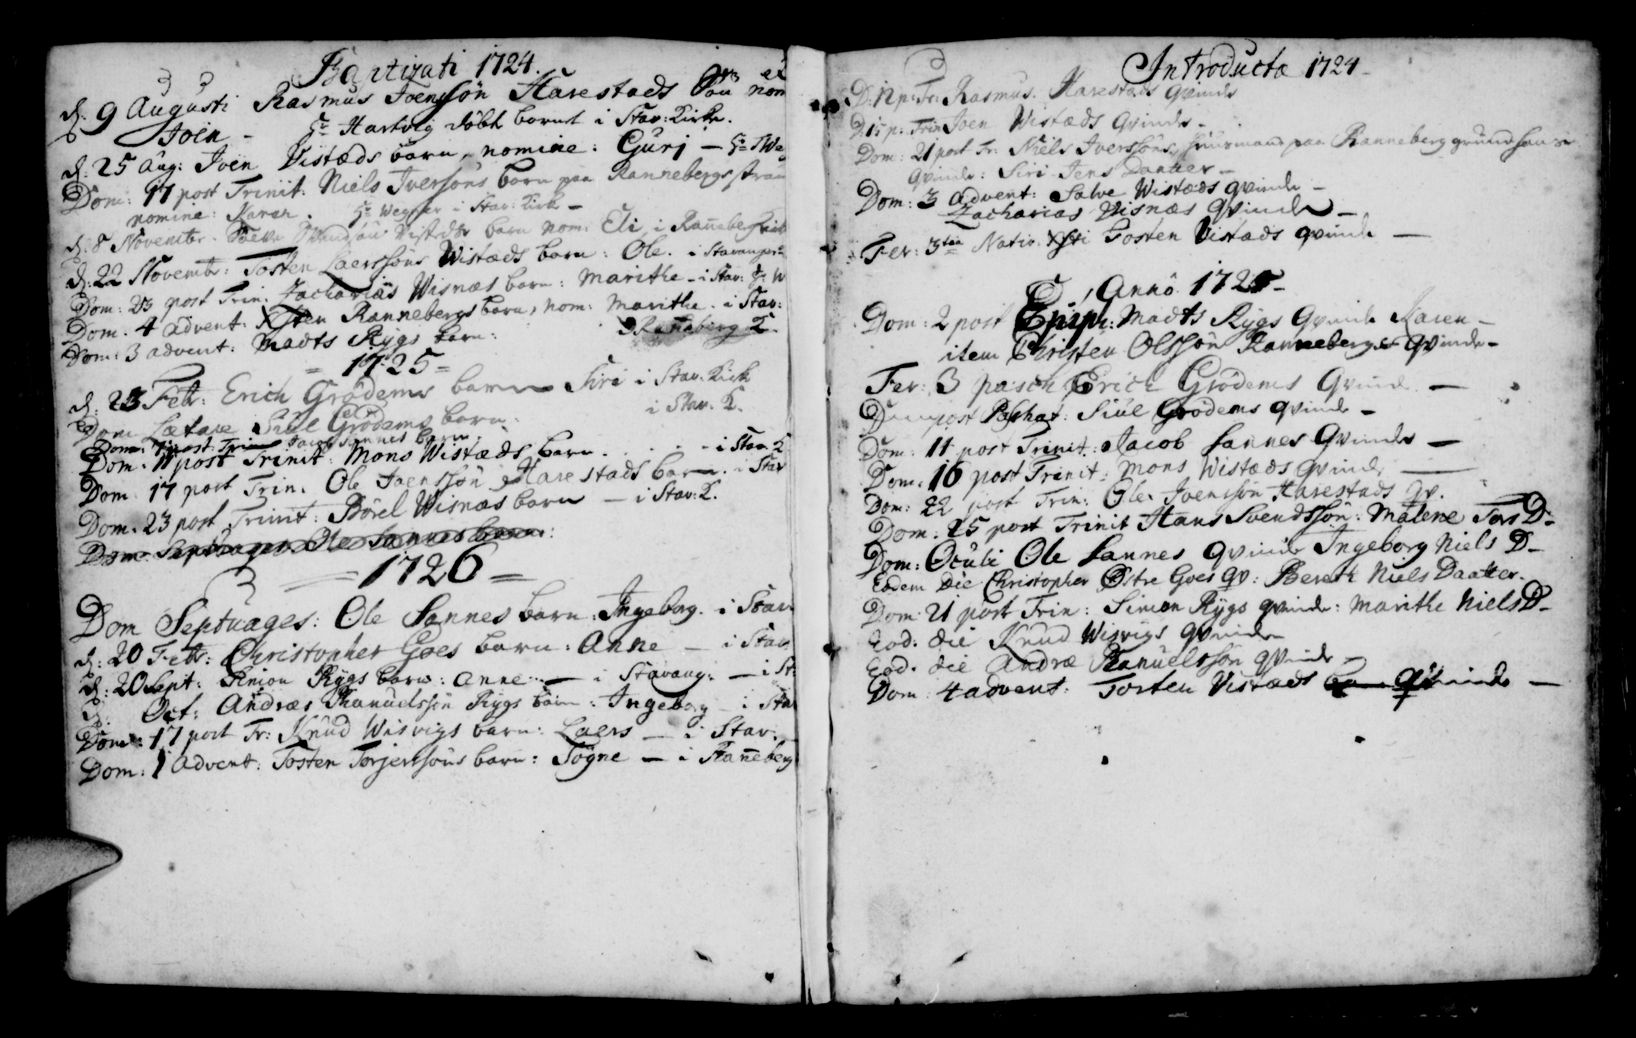 Baptizati 1724.
d. 9 Augusti Rasmus Joenssön Harestads barn nom
Joen - Hr Hartvig döbt barnet i Stav: Kirke.
d. 25 Aug: Joen Vistæds barn, nomine: Gurj - Hr We
Dom: 17 post Trinit: Niels Iversöns barn paa Rannebergs stran
nomine: Karen. Hr Wegner i Stav: Kirk -
d. 8 Novembr. Svendsön Vistæds barn nom: Eli, i Raneberg kirk
d. 22 Novembr: Tosten Laerssöns Wistæds barn: Ole. i Stavanger
Dom: 23 post Trin: Zacharias Wisnæs barn: Marithe - i Stav: Hr W
Dom. 4 Advent: Xsten Rannebergs barn, nom: Marithe. i Stav:
Dom: 3 advent: Madts Rygs barn: Raneberg K.
= 1725 =
d. 23 Febr: Erich Grödems barn Siri i Stav. Kirk
Dom Lætare Siul Grödems barn: i Stav. K.
Dom: 7 post Trin Jacob Sannes barn
Dom. 11 post Trinit: Mons Wistæds barn. - i Stav. K
Dom. 17 post Trin. Ole Joenssön Harestads barn. i Stav
Dom. 23 post Trinit: Börel Wisnæs barn - i Stav: K.
Dom. Septuages. Ole Sannes barn:
= 1726 =
Dom Septuages: Ole Sannes barn: Ingeborg. i Stav.
d. 20 Febr: Christopher Goes barn: Anne - i Stav
d. 20 Sept: Simon Rygs barn: Anne - i Stavang: - i St
d. Oct: Andræs Ranuelssön Rygs barn: Ingeborg - i Sta
Dom: 17 post Tr: Knud Wisvigs barn: Laers - i Stav:
Dom: 1 Advent: Tosten Torjerssöns barn: Togne - i Raneberg
Introductæ 1724.
D: 12 p: Tr: Rasmus Harestads qvinde
D. 15 p: Trin Joen Wistæds Qvinde -
Dom: 21 post Tr: Niels Iverssöns, Huusmand paa Ranneberg grund
Qvinde: Siri Jens Daatter -
Dom: 3 Advent: Salve Wistæds qvinde -
Zacharias Visnæs Qvinde -
Fer: 3tia Nativ: Xsti Tosten Vistads qvinde -
Anno 1725 -
Dom: 2 post Epiph: Madts Rygs Qvinde Karen -
item Christen Olssön Rannebergs Qvinde -
Fer: 3 pasch Erich Grödems Qvinde -
post Paschat: Siul Grödems qvinde -
Dom: 11 post Trinit: Jacob Sannes Qvinde -
Dom. 16 post Trinit: Mons Wistæds Qvinde -
Dom: 22 post Trin: Ole Joenssön Harestads Qv.
Dom: 25 post Trinit Hans Svendssön: Malene Tors D-
Dom: Oculi Ole Sannes qvinde Ingeborg Niels D-
Eodem Die Christopher Östre Goes Qv: Bereth Niels Daatter.
Dom: 21 post Trin: Simon Rygs qvinde: Marithe Niels D-
Eod: die Knud Wisvigs Qvinde
Eod. die Andræ Ranuelssön qvinde -
Dom. 4 advent: Torsten Vistæds qvinde -